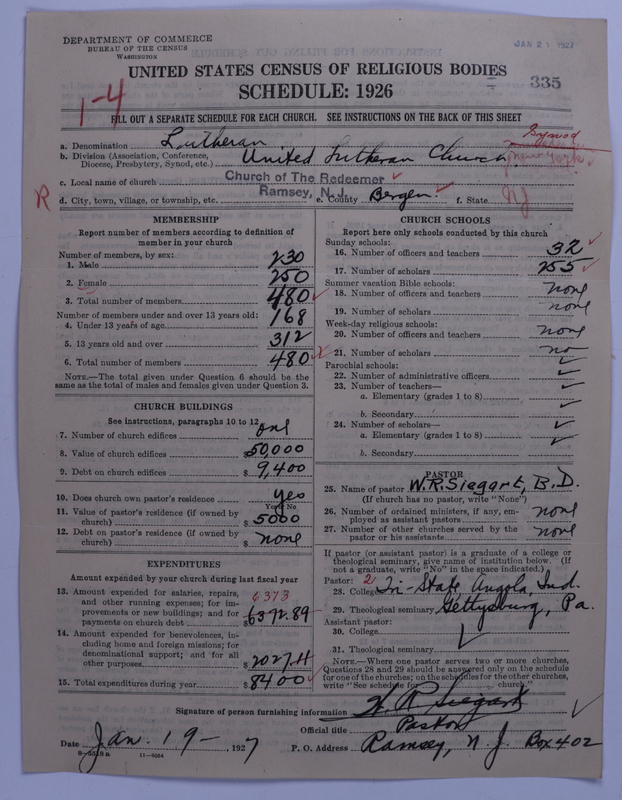 DEPARTMENT OF COMMERCE
BUREAU OF THE CENSUS
WASHINGTON
JAN 21 1927
UNITED STATES CENSUS OF RELIGIOUS BODIES
SCHEDULE: 1926
335
1-4
FILL OUT A SEPARATE SCHEDULE FOR EACH CHURCH. SEE INSTRUCTIONS ON THE BACK OF THIS SHEET
Synod
a. Denomination Lutheran
b. Division (Association, Conference, Diocese, Presbytery, Synod, etc.) United Lutheran Church New York
c. Local name of church Church of The Redeemer
R d. City, town, village, or township, etc. Ramsey, N. J. e. County Bergen f. State NJ
MEMBERSHIP
Report number of members according to definition of
member in your church
Number of members, by sex:
1. Male 230
2. Female 250
3. Total number of members 480
Number of members under and over 13 years old:
4. Under 13 years of age 168
5. 13 years old and over 312
6. Total number of members 480
NOTE.—The total given under Question 6 should be the
same as the total of males and females given under Question 3.
CHURCH BUILDINGS
See instructions, paragraphs 10 to 12
7. Number of church edifices one
8. Value of church edifices $ 50,000
9. Debt on church edifices $ 9,400
10. Does church own pastor's residence yes
Yes or No
11. Value of pastor's residence (if owned by
church) $ 5000
12. Debt on pastor's residence (if owned by
church) $ none
EXPENDITURES
Amount expended by your church during last fiscal year
13. Amount expended for salaries, repairs, 6373
and other running expenses; for im-
provements or new buildings; and for
payments on church debt $ 6372.89
14. Amount expended for benevolences, in-
cluding home and foreign missions; for
denominational support; and for all
other purposes $ 2027.11
15. Total expenditures during year $ 8400
CHURCH SCHOOLS
Report here only schools conducted by this church
Sunday schools:
16. Number of officers and teachers 32
17. Number of scholars 255
Summer vacation Bible schools:
18. Number of officers and teachers none
19. Number of scholars none
Week-day religious schools:
20. Number of officers and teachers none
21. Number of scholars no
Parochial schools:
22. Number of administrative officers
23. Number of teachers—
a. Elementary (grades 1 to 8)
b. Secondary
24. Number of scholars—
a. Elementary (grades 1 to 8)
b. Secondary
PASTOR
25. Name of pastor W. R. Siegart, B. D.
(If church has no pastor, write "None")
26. Number of ordained ministers, if any, em-
ployed as assistant pastors none
27. Number of other churches served by the
pastor or his assistants none
If pastor (or assistant pastor) is a graduate of a college or
theological seminary, give name of institution below. (If
not a graduate, write "No" in the space indicated.)
Pastor: 2
28. College Tri-State Angola, Ind.
29. Theological seminary Gettysburg, Pa.
Assistant pastor:
30. College
31. Theological seminary
NOTE.—Where one pastor serves two or more churches,
Questions 28 and 29 should be answered only on the schedule
for one of the churches; on the schedules for the other churches,
write "See schedule for church."
Signature of person furnishing information W. R. Siegart
Official title Pastor
Date Jan. 19-, 1927 P. O. Address Ramsey, N. J. Box 402
8-5518a 11-9054